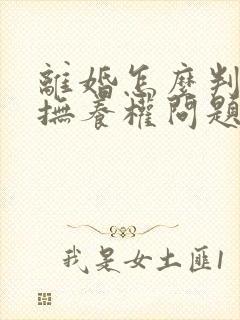 離婚怎麼判
撫養權問題
我是女土匪1